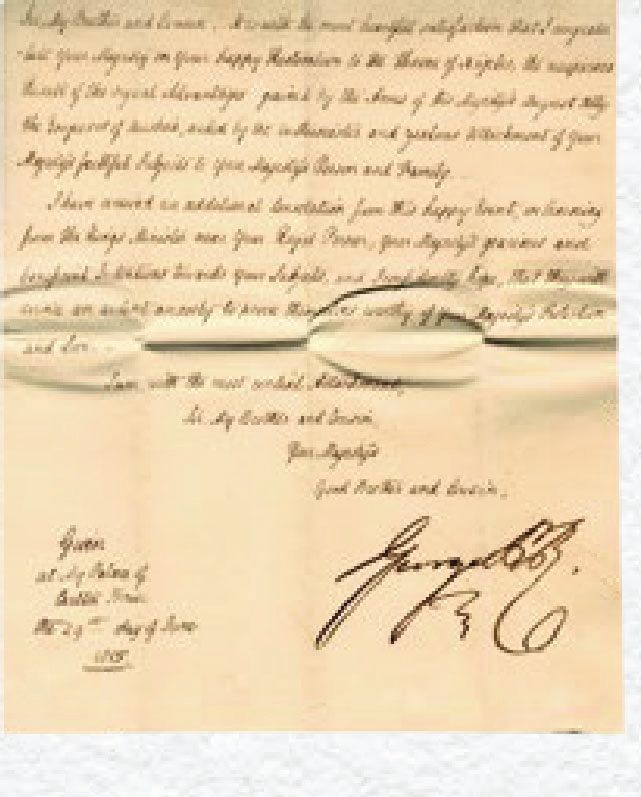 Sir My Brother and Cousin. It is with the most heartfelt satisfaction that I congratu
-late Your Majesty on Your happy Restoration to the Throne of Naples, the
Result of the signal Advantages gained by the Arms of His Majesty's August Ally
the Emperor of Austria, aided by the and zealous Attachment of Your
Majesty's faithful Subjects to Your Majesty's Person and Family.
I have received an additional from this happy Event, in learning
from the King's Minister near Your Royal Person, Your Majesty's gracious and
Intentions towards Your Subjects, and I confidently hope, that they will
evince an anxiety to prove themselves worthy of Your Majesty's Protection
and Love.
I am, with the most cordial Attachment,
Sir My Brother and Cousin,
Your Majesty's
Good Brother and Cousin,
Given
at My Palace of
Carlton House
the day of June
1815.
George P. R.